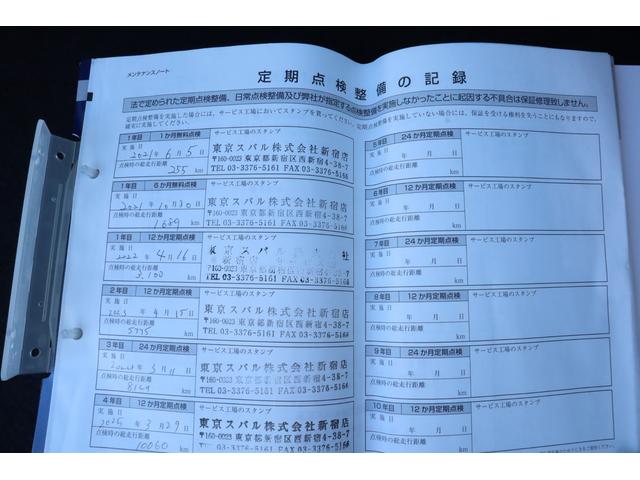 メンテナンスノート
定期点検整備の記録
法で定められた定期点検整備、日常点検整備及び弊社が指定する点検整備を実施しなかったことに起因する不具合は保証修理致しません。
点検整備を実施した場合には、サービス工場においてスタンプを貰ってください。定期点検整備を実施していない場合には、保証を受ける権利を失うことにもなりますので、
確実に実施してください。
1年目 1か月無料点検 サービス工場のスタンプ
実施日
2021年6月5日
点検時の総走行距離
255 km
東京スバル株式会社新宿店
〒160-0023 東京都新宿区西新宿4-38-7
TEL 03-3376-5161 FAX 03-3376-5164
1年目 6か月無料点検 サービス工場のスタンプ
実施日
2021年10月30日
点検時の総走行距離
1689 km
東京スバル株式会社新宿店
〒160-0023 東京都新宿区西新宿4-38-7
TEL 03-3376-5161 FAX 03-3376-5164
1年目 12か月定期点検 サービス工場のスタンプ
実施日
2022年4月16日
点検時の総走行距離
3,100 km
東京スバル
TEL 03-3376-5161 FAX 03-3376-5164
2年目 12か月定期点検 サービス工場のスタンプ
実施日
2023年4月15日
点検時の総走行距離
5775 km
東京スバル株式会社新宿店
〒160-0023 東京都新宿区西新宿4-38-7
TEL 03-3376-5161 FAX 03-3376-5164
3年目 24か月定期点検 サービス工場のスタンプ
実施日
2024年3月11日
点検時の総走行距離
km
東京スバル株式会社新宿店
〒160-0023 東京都新宿区西新宿4-38-7
TEL 03-3376-5161 FAX 03-3376-5164
4年目 12か月定期点検 サービス工場のスタンプ
実施日
2025年3月29日
点検時の総走行距離
10060 km
東京スバル株式会社新宿店
〒160-0023 東京都新宿区西新宿4-38-7
TEL 03-3376-5161 FAX 03-3376-5164
5年目 24か月定期点検 サービス工場のスタンプ
実施日
年 月 日
点検時の総走行距離
km
6年目 12か月定期点検 サービス工場のスタンプ
実施日
年 月 日
点検時の総走行距離
km
7年目 24か月定期点検 サービス工場のスタンプ
実施日
年 月 日
点検時の総走行距離
km
8年目 12か月定期点検 サービス工場のスタンプ
実施日
年 月 日
点検時の総走行距離
km
9年目 24か月定期点検 サービス工場のスタンプ
実施日
年 月 日
点検時の総走行距離
km
10年目 12か月定期点検 サービス工場のスタンプ
実施日
年 月 日
点検時の総走行距離
km